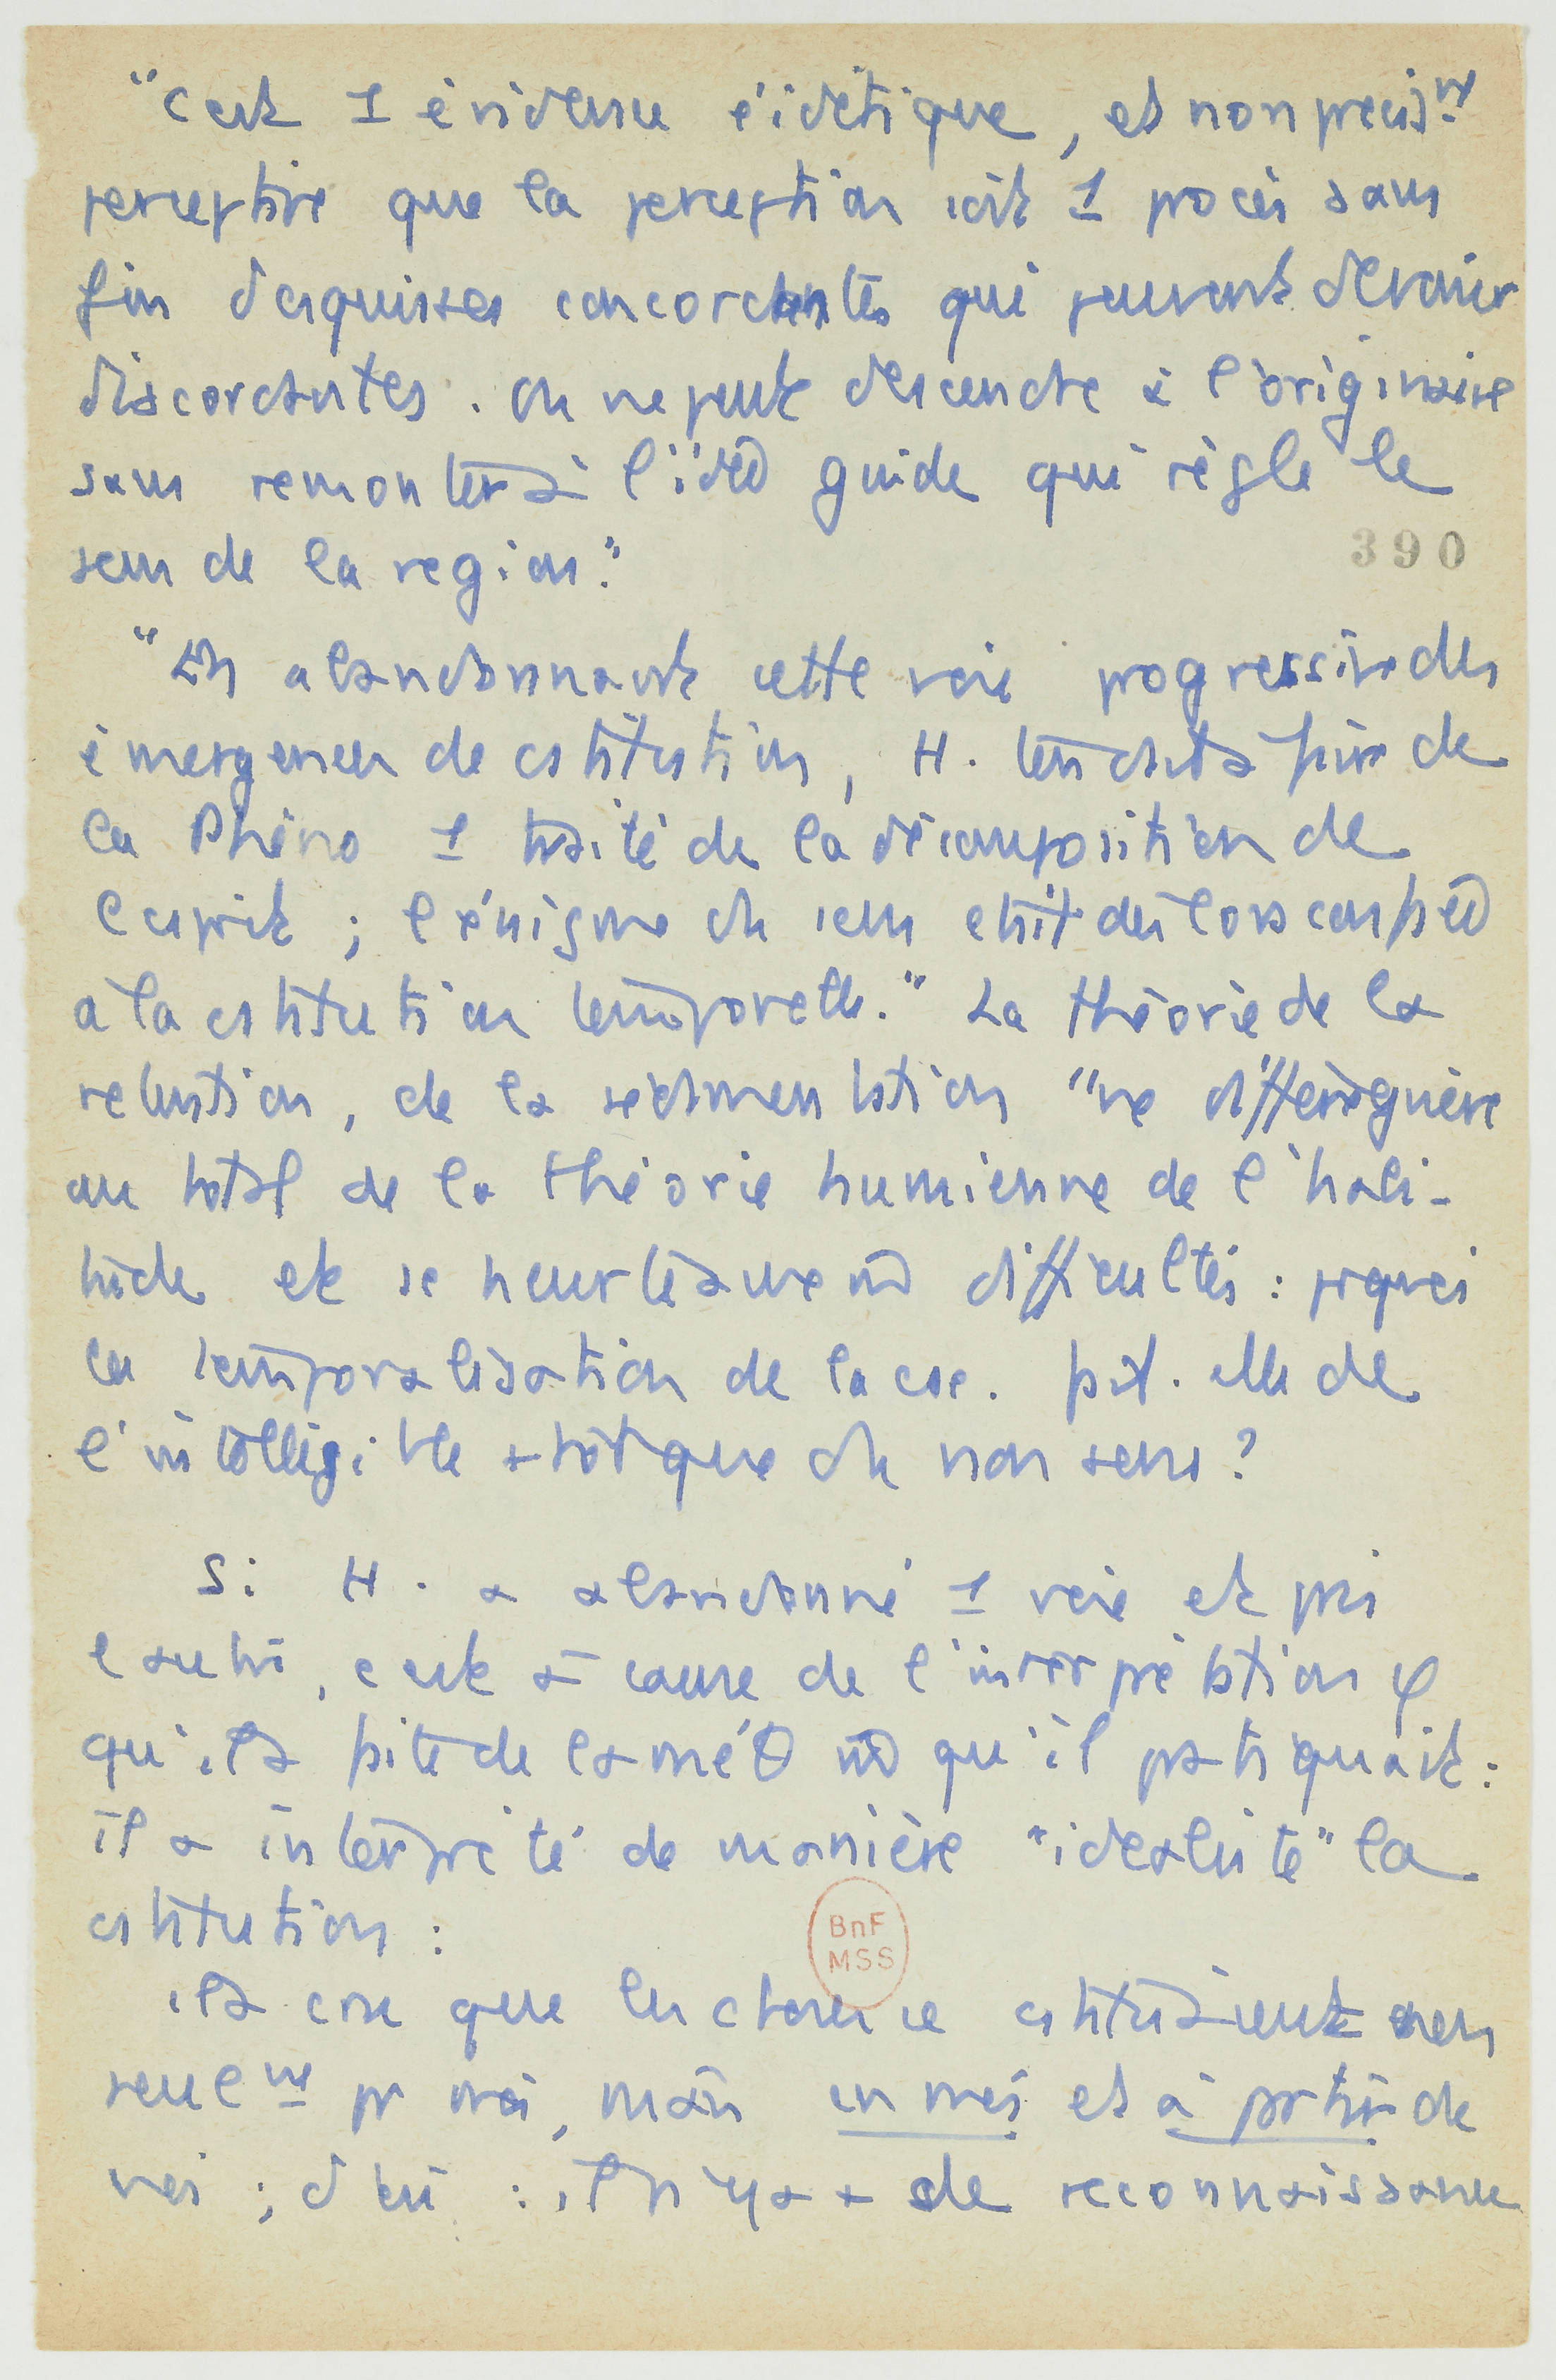 "C'est 1 évidence eidétique, et non précis.nt
perceptive que la perception soit 1 procès sans
fin d'esquisses concordantes qui peuvent devenir
discordantes. On ne peut descendre à l'originaire
sans remonter à l'idée guide qui règle le
sens de la région."
390
"En abandonnant cette voie progressive des
émergences de cstitution, H. tendait à faire de
la Phéno 1 traité de la décomposition de
l'esprit ; l'énigme du sens était dès lors
à la cstitution temporelle." La théorie de la
rétention, de la sédimentation "ne diffère guère
au total de la théorie humienne de l'habi-
tude et se heurte à même difficultés : pquoi
la temporalisation de la csc. fait-elle de
l'intelligible + tôt que du non sens ?
Si H. a abandonné 1 voie et pris
l'autre, c'est à cause de l'interprétation φ
qu'il a faite de la méθ qu'il pratiquait :
il a interprété de manière "idéaliste" la
cstitution :
BnF
MSS
il a cru que les choses se cstituaient non
seulnt pr moi, mais en moi et à partir de
moi ; d'où : il n'y a + de reconnaissance